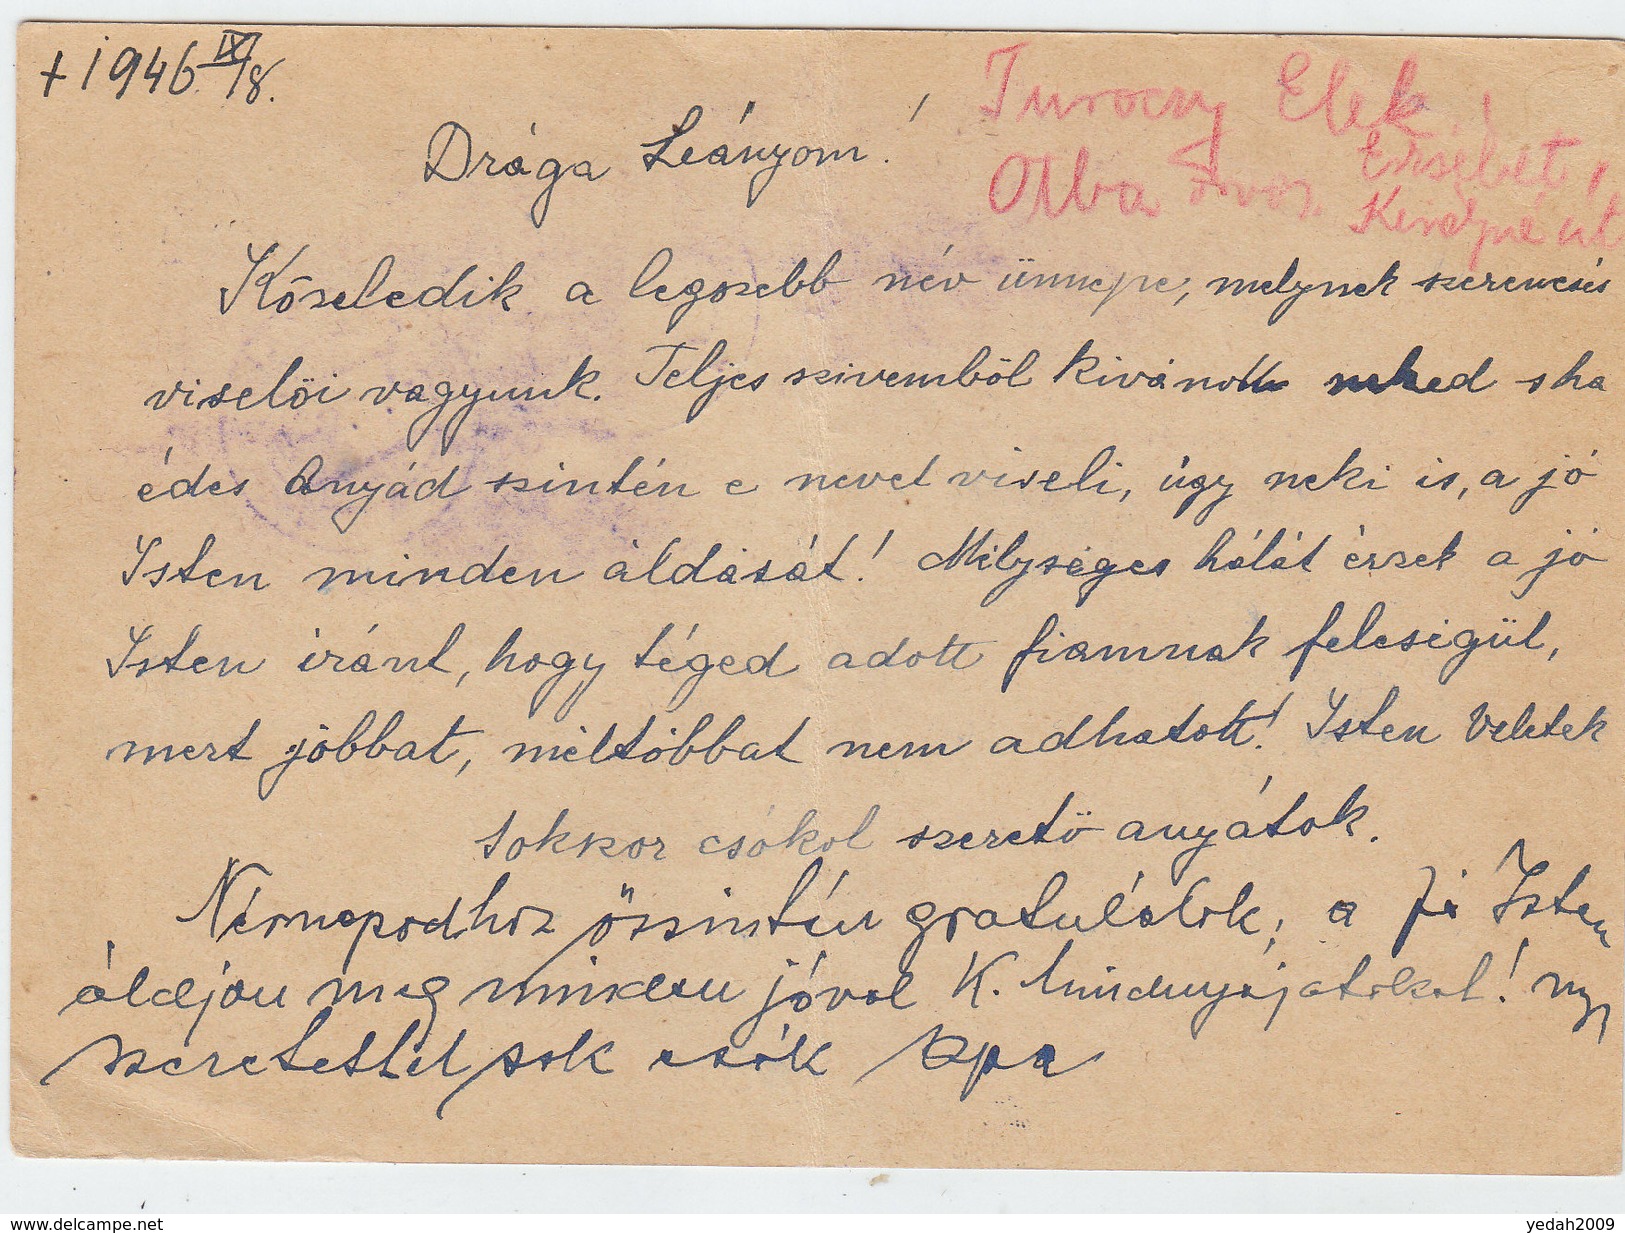 + 1946 IX/8.
Turoczy Elek
Erzsébet,
Drága Leányom!
Közeledik a legszebb név ünnepe, melynek szerencsés
viselöi vagyunk. Teljes szivemböl kivánok neked s ha
édes Anyád szintén e nevet viseli, úgy neki is, a jó
Isten minden áldását! Mélységes hálát érzek a jó
Isten iránt, hogy téged adott fiamnak feleségül,
mert jobbat, méltóbbat nem adhatott! Isten Veletek
sokszor csókol szeretö anyátok.
Névnapodhoz öszintén gratulálok, a Jó Isten
áldjon meg minden jóval K. Mindnyájatokat!
szeretettel sok csók Apa
www.delcampe.net
yedah2009